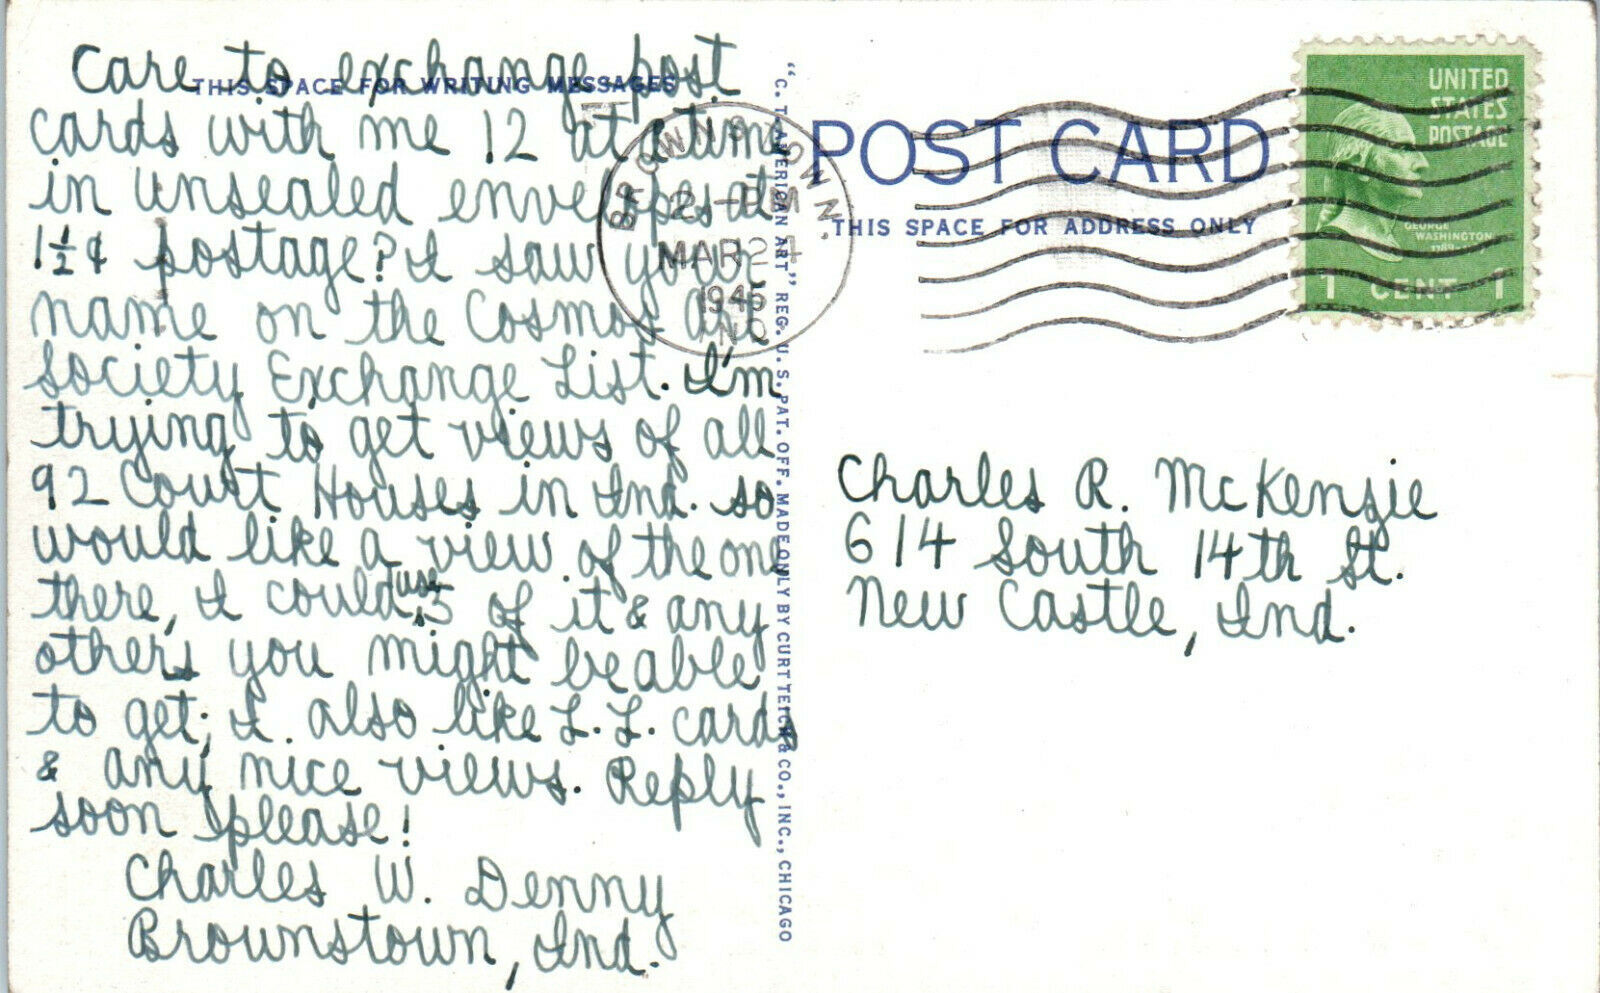 Care to exchange post
THIS SPACE FOR WRITING MESSAGES
cards with me 12 at a time
in unsealed envelopes at
1½¢ postage? I saw your
name on the Cosmos Art
Society Exchange List. I'm
trying to get views of all
92 Court Houses in Ind. so
would like a view of the one
there, I could use 5 of it & any
others you might be able
to get; I also like L.L. cards
& any nice views. Reply
soon please!
Charles W. Denny
Brownstown, Ind.
"C. T. AMERICAN ART" REG. U. S. PAT. OFF. MADE ONLY BY CURT TEICH & CO., INC., CHICAGO
BROWNSTOWN.
2-PM
MAR 24
1946
IND.
POST CARD
THIS SPACE FOR ADDRESS ONLY
UNITED
STATES
POSTAGE
GEORGE
WASHINGTON
1 CENT 1
Charles R. McKenzie
614 South 14th St.
New Castle, Ind.